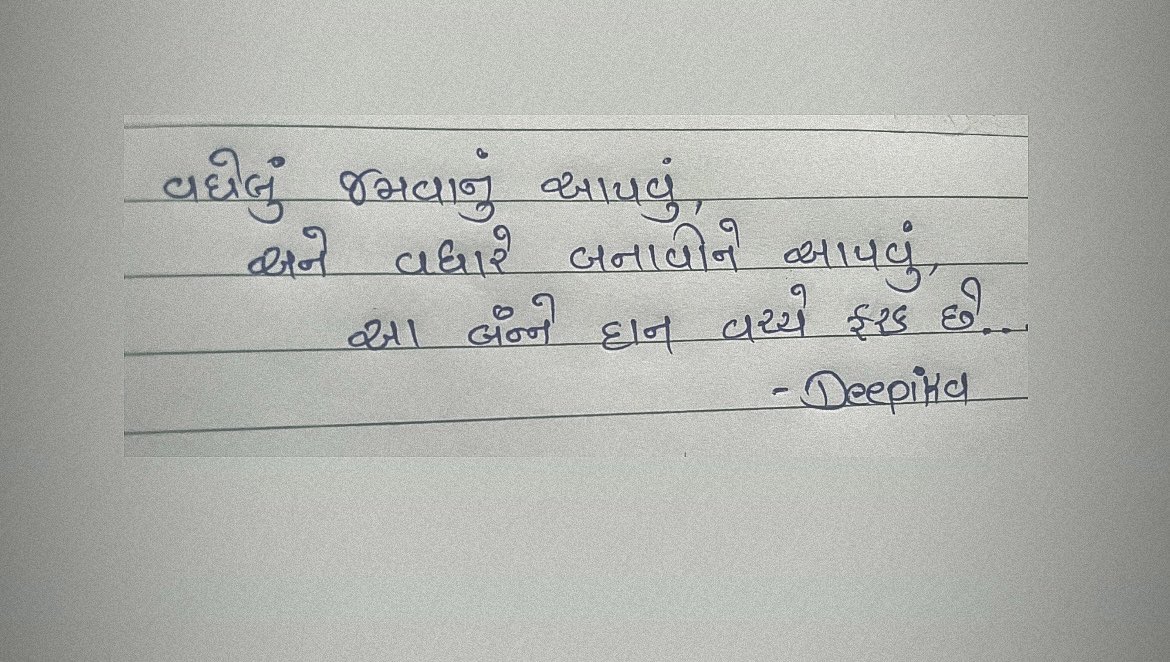 વધેલું જમવાનું આપવું,
અને વધારે બનાવીને આપવું,
આ બંન્ને દાન વચ્ચે ફરક છે...
- Deepika